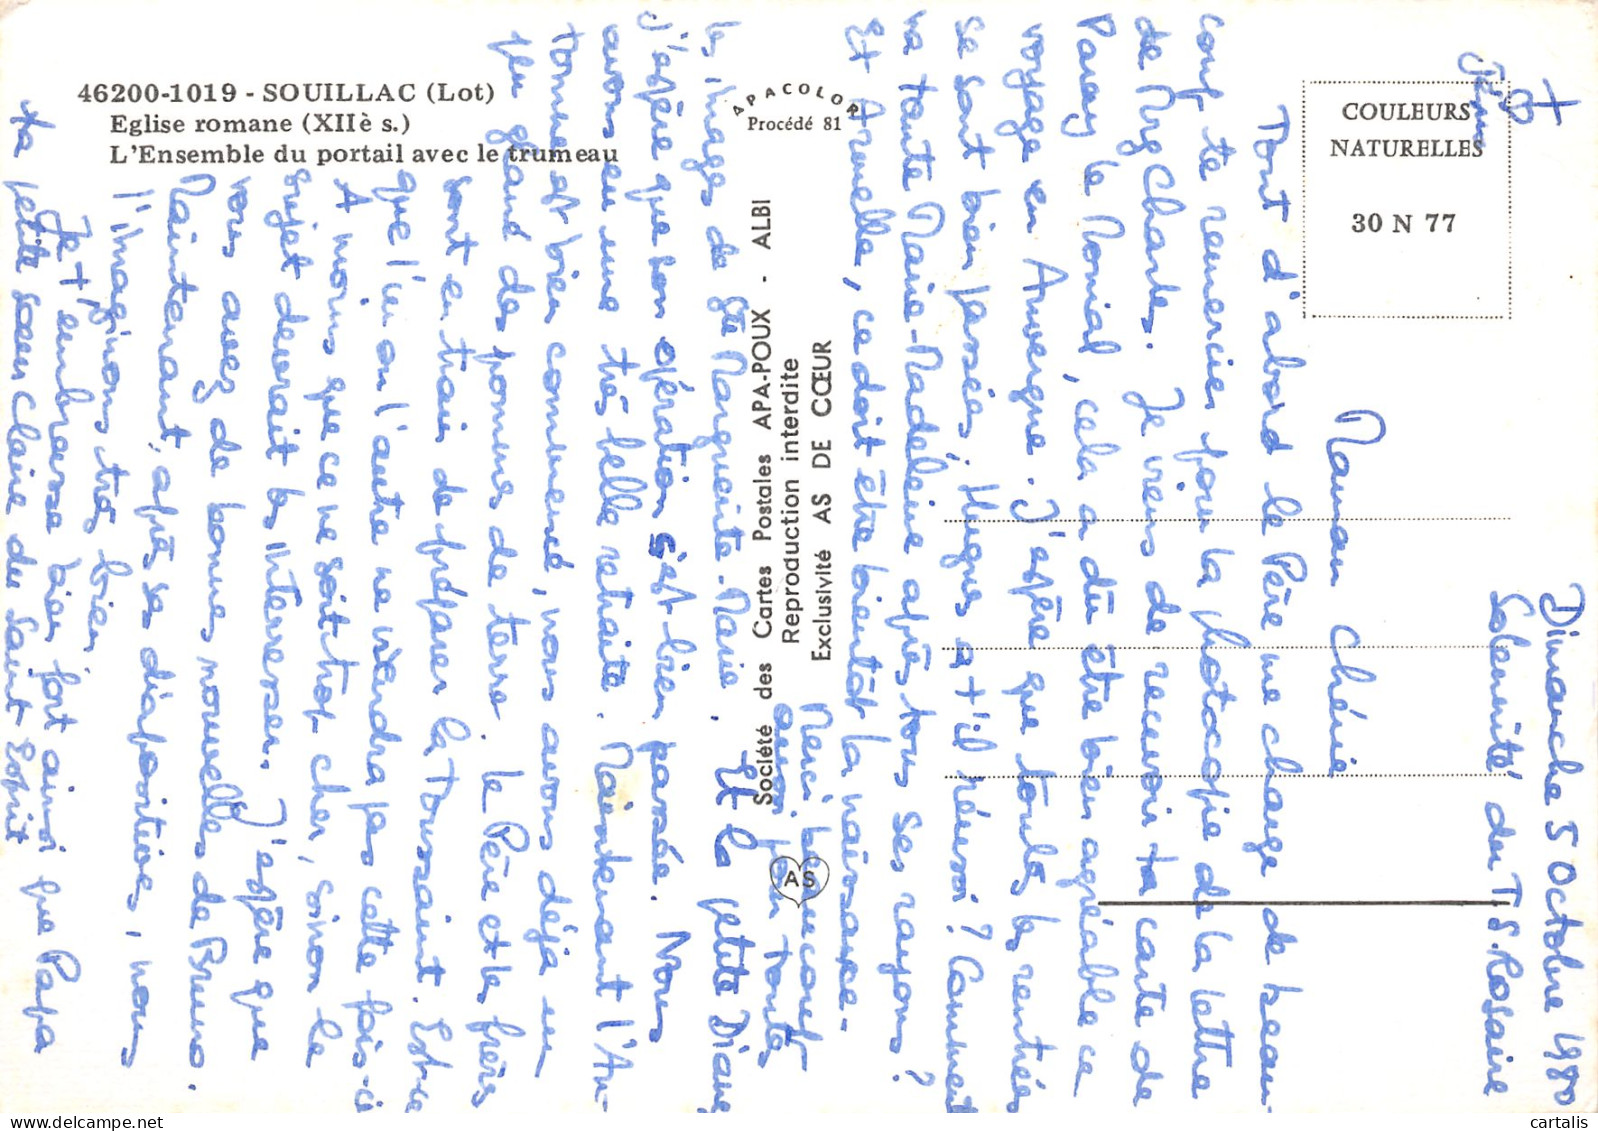 46200-1019 - SOUILLAC (Lot)
Eglise romane (XIIè s.)
L'Ensemble du portail avec le trumeau
APACOLOR
Procédé 81
COULEURS
NATURELLES
30 N 77
Société des Cartes Postales APA-POUX - ALBI
Reproduction interdite
Exclusivité AS DE CŒUR
AS
+
Dimanche 5 Octobre 1980
Solennité du T.S. Rosaire
Maman chérie
Tont d'abord le Père me charge de beau-
coup te remercier pour la photocopie de la lettre
de Mrg Charles. Je viens de recevoir ta carte de
Paray le Monial, cela a dû être bien agréable ce
voyage en Auvergne. J'espère que toutes les rentrées
se sont bien passées; Hugues a t'il réussi? Comment
va tante Marie-Madeleine après tous ses rayons?
Et Armelle, ce doit être bientôt la naissance.
Merci beaucoup
aussi pour toutes
les images de Ste Marguerite-Marie. Et la petite Diane
j'espère que son opération s'est bien passée. Nous
avons eu une très belle retraite. Maintenant l'Au-
tomne est bien commencé, nous avons déjà eu
peu glané des pommes de terre. Le Père et les frères
sont en train de préparer la Toussaint. Est-ce
que l'un ou l'autre ne viendra pas cette fois-ci
A moins que ce ne soit trop cher, sinon le
sujet devrait les intéresser. J'espère que
vous avez de bonnes nouvelles de Bruno.
Maintenant, après sa diaposition, nous
l'imaginons très bien.
Je t'embrasse bien fort ainsi que Papa
ta petite soeur Claire du Saint Esprit
www.delcampe.net
cartalis